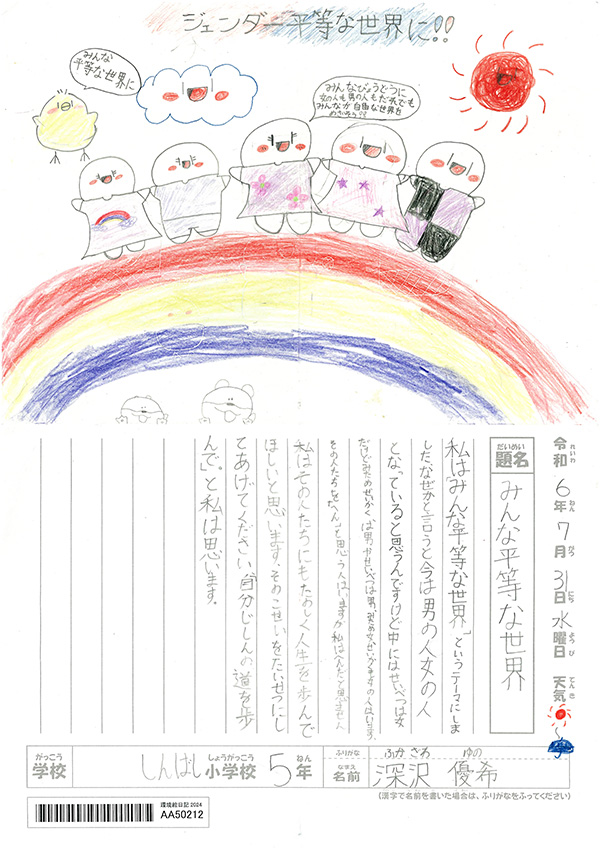 ジェンダー平等な世界に!!
みんな
平等な世界に
みんなびょうどうに
女の人も男の人もだれでも
みんなが自由な世界を
令和6年7月31日水曜日 天気
れいわ ねん がつ にち ようび てんき
だいめい
題名
みんな平等な世界
私は「みんな平等な世界」というテーマにしま
した。なぜかと言うと今は男の人女の人
となっていると思うんですけど中にはせいべつは女
だけどみためせいかくは男やせいべつは男、みため女、せいかく女子の人がいます。
その人たちを「へん」と思う人はいますが私はへんだと思いません
私はその人たちにもたのしく人生を歩んで
ほしいと思います。そのこせいをたいせつにし
てあげてください。「自分じしんの道を歩
んで。」と私は思います。
がっこう しょうがっこう ねん
学校 しんばし 小学校 5年
ふりがな ふかざわ ゆの
なまえ
名前 深沢 優希
(漢字で名前を書いた場合は、ふりがなをふってください)
環境絵日記2024
AA50212